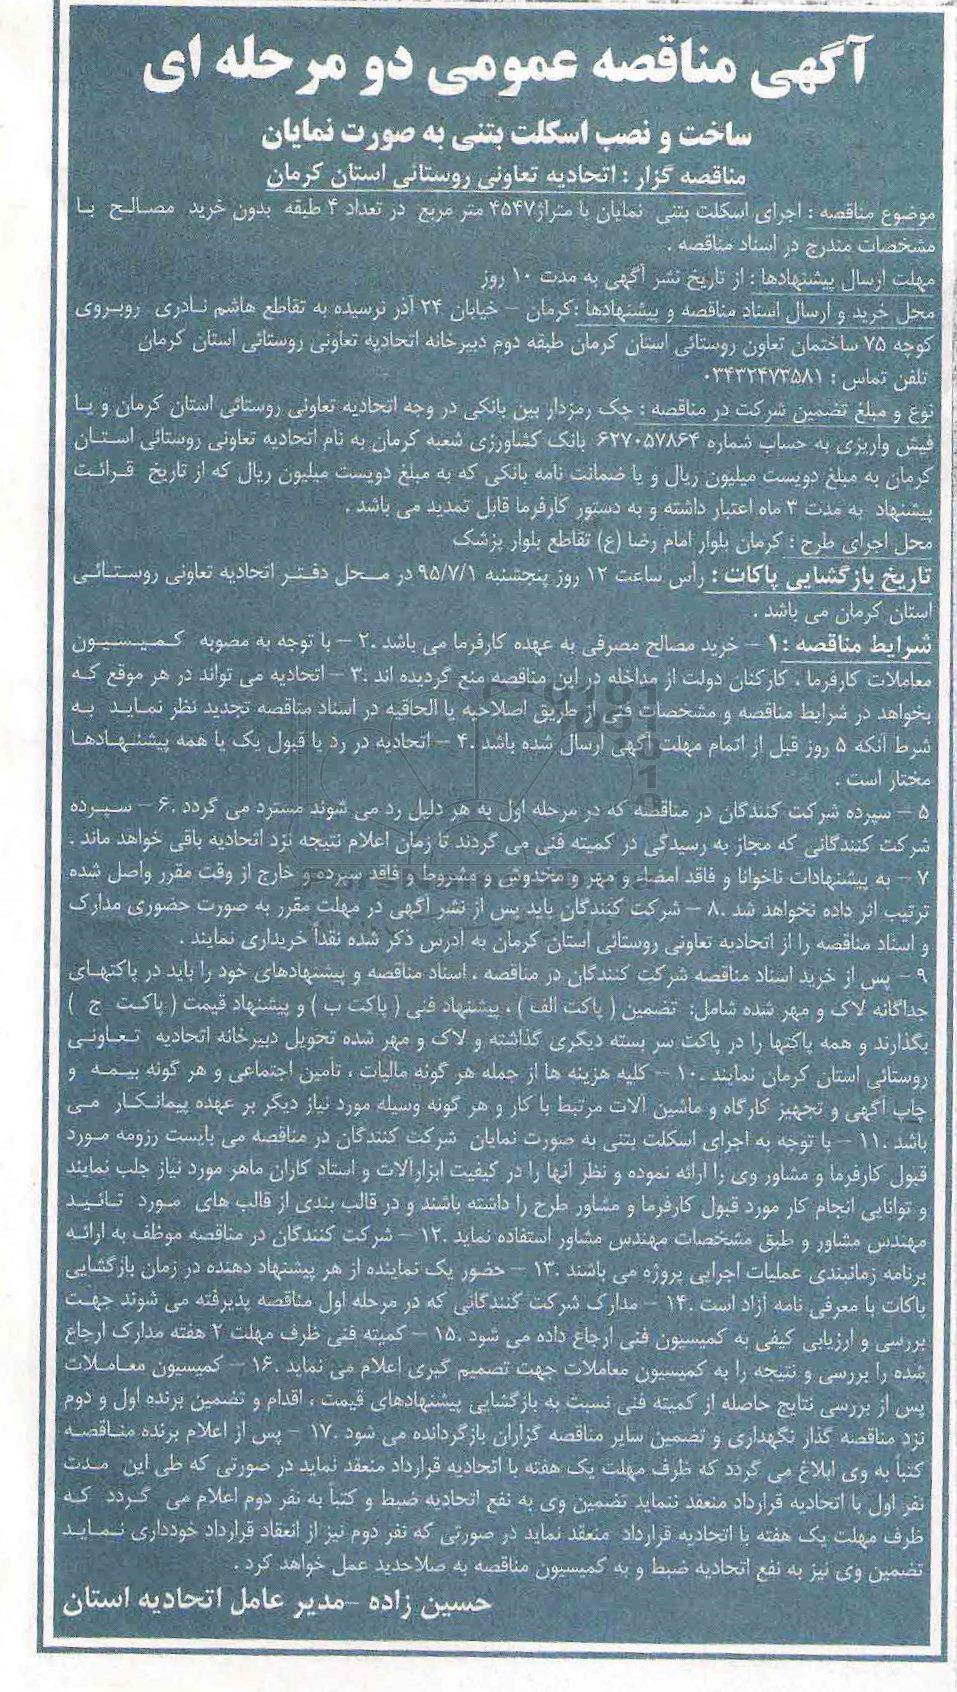 آگهی مناقصه عمومی دو مرحله ای
ساخت و نصب اسکلت بتنی به صورت نمایان
مناقصه گزار : اتحادیه تعاونی روستائی استان کرمان
موضوع مناقصه : اجرای اسکلت بتنی نمایان با متراژ ۴۵۴۷ متر مربع در تعداد ۴ طبقه بدون خرید مصالح با
مشخصات مندرج در اسناد مناقصه .
مهلت ارسال پیشنهادها : از تاریخ نشر آگهی به مدت ۱۰ روز
محل خرید و ارسال اسناد مناقصه و پیشنهادها :کرمان – خیابان ۲۴ آذر نرسیده به تقاطع هاشم نادری روبروی
کوچه ۷۵ ساختمان تعاون روستائی استان کرمان طبقه دوم دبیرخانه اتحادیه تعاونی روستائی استان کرمان
تلفن تماس : ۰۳۴۳۲۴۷۳۵۸۱
نوع و مبلغ تضمین شرکت در مناقصه : چک رمزدار بین بانکی در وجه اتحادیه تعاونی روستائی استان کرمان و یا
فیش واریزی به حساب شماره ۶۲۷۰۵۷۸۶۴ بانک کشاورزی شعبه کرمان به نام اتحادیه تعاونی روستائی استان
کرمان به مبلغ دویست میلیون ریال و یا ضمانت نامه بانکی که به مبلغ دویست میلیون ریال که از تاریخ قرائت
پیشنهاد به مدت ۳ ماه اعتبار داشته و به دستور کارفرما قابل تمدید می باشد .
محل اجرای طرح : کرمان بلوار امام رضا (ع) تقاطع بلوار پزشک
تاریخ بازگشایی پاکات : رأس ساعت ۱۲ روز پنجشنبه ۹۵/۷/۱ در محل دفتر اتحادیه تعاونی روستائی
استان کرمان می باشد .
شرایط مناقصه :۱ – خرید مصالح مصرفی به عهده کارفرما می باشد .۲ – با توجه به مصوبه کمیسیون
معاملات کارفرما ، کارکنان دولت از مداخله در این مناقصه منع گردیده اند .۳ – اتحادیه می تواند در هر موقع که
بخواهد در شرایط مناقصه و مشخصات فنی از طریق اصلاحیه یا الحاقیه در اسناد مناقصه تجدید نظر نماید به
شرط آنکه ۵ روز قبل از اتمام مهلت آگهی ارسال شده باشد .۴ – اتحادیه در رد یا قبول یک یا همه پیشنهادها
مختار است .
۵ – سپرده شرکت کنندگان در مناقصه که در مرحله اول به هر دلیل رد می شوند مسترد می گردد .۶ – سپرده
شرکت کنندگانی که مجاز به رسیدگی در کمیته فنی می گردند تا زمان اعلام نتیجه نزد اتحادیه باقی خواهد ماند .
۷ – به پیشنهادات ناخوانا و فاقد امضاء و مهر و مخدوش و مشروط و فاقد سپرده و خارج از وقت مقرر واصل شده
ترتیب اثر داده نخواهد شد .۸ – شرکت کنندگان باید پس از نشر آگهی در مهلت مقرر به صورت حضوری مدارک
و اسناد مناقصه را از اتحادیه تعاونی روستائی استان کرمان به آدرس ذکر شده نقداً خریداری نمایند .
۹ – پس از خرید اسناد مناقصه شرکت کنندگان در مناقصه ، اسناد مناقصه و پیشنهادهای خود را باید در پاکتهای
جداگانه لاک و مهر شده شامل: تضمین ( پاکت الف ) ، پیشنهاد فنی ( پاکت ب ) و پیشنهاد قیمت ( پاکت ج )
بگذارند و همه پاکتها را در پاکت سر بسته دیگری گذاشته و لاک و مهر شده تحویل دبیرخانه اتحادیه تعاونی
روستائی استان کرمان نمایند .۱۰ – کلیه هزینه ها از جمله هر گونه مالیات ، تأمین اجتماعی و هر گونه بیمه و
چاپ آگهی و تجهیز کارگاه و ماشین آلات مرتبط با کار و هر گونه وسیله مورد نیاز دیگر بر عهده پیمانکار می
باشد .۱۱ – با توجه به اجرای اسکلت بتنی به صورت نمایان شرکت کنندگان در مناقصه می بایست رزومه مورد
قبول کارفرما و مشاور وی را ارائه نموده و نظر آنها را در کیفیت ابزارآلات و استاد کاران ماهر مورد نیاز جلب نمایند
و توانایی انجام کار مورد قبول کارفرما و مشاور طرح را داشته باشند و در قالب بندی از قالب های مورد تائید
مهندس مشاور و طبق مشخصات مهندس مشاور استفاده نماید .۱۲ – شرکت کنندگان در مناقصه موظف به ارائه
برنامه زمانبندی عملیات اجرایی پروژه می باشند .۱۳ – حضور یک نماینده از هر پیشنهاد دهنده در زمان بازگشایی
پاکات با معرفی نامه آزاد است .۱۴ – مدارک شرکت کنندگانی که در مرحله اول مناقصه پذیرفته می شوند جهت
بررسی و ارزیابی کیفی به کمیسیون فنی ارجاع داده می شود .۱۵ – کمیته فنی ظرف مهلت ۲ هفته مدارک ارجاع
شده را بررسی و نتیجه را به کمیسیون معاملات جهت تصمیم گیری اعلام می نماید .۱۶ – کمیسیون معاملات
پس از بررسی نتایج حاصله از کمیته فنی نسبت به بازگشایی پیشنهادهای قیمت ، اقدام و تضمین برنده اول و دوم
نزد مناقصه گذار نگهداری و تضمین سایر مناقصه گزاران بازگردانده می شود .۱۷ – پس از اعلام برنده مناقصه
کتباً به وی ابلاغ می گردد که ظرف مهلت یک هفته با اتحادیه قرارداد منعقد نماید در صورتی که طی این مدت
نفر اول با اتحادیه قرارداد منعقد ننماید تضمین وی به نفع اتحادیه ضبط و کتباً به نفر دوم اعلام می گردد که
ظرف مهلت یک هفته با اتحادیه قرارداد منعقد نماید در صورتی که نفر دوم نیز از انعقاد قرارداد خودداری نماید
تضمین وی نیز به نفع اتحادیه ضبط و به کمیسیون مناقصه به صلاحدید عمل خواهد کرد .
حسین زاده –مدیر عامل اتحادیه استان